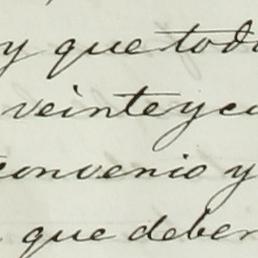 y que tod
veinteyc
convenio y
que deber